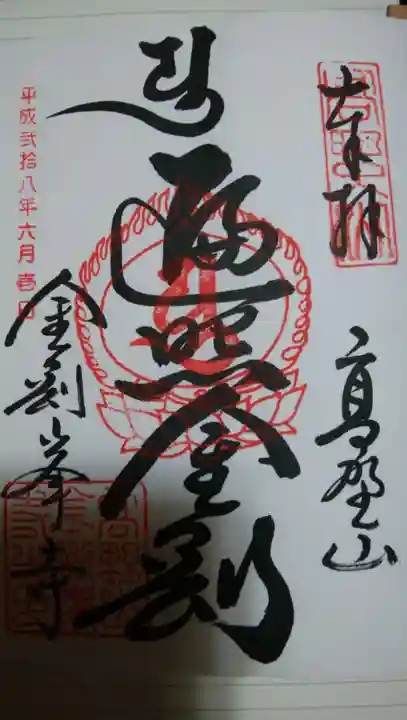 奉拝
高野山
遍照金剛
金剛峯寺
平成弐拾八年六月壱日